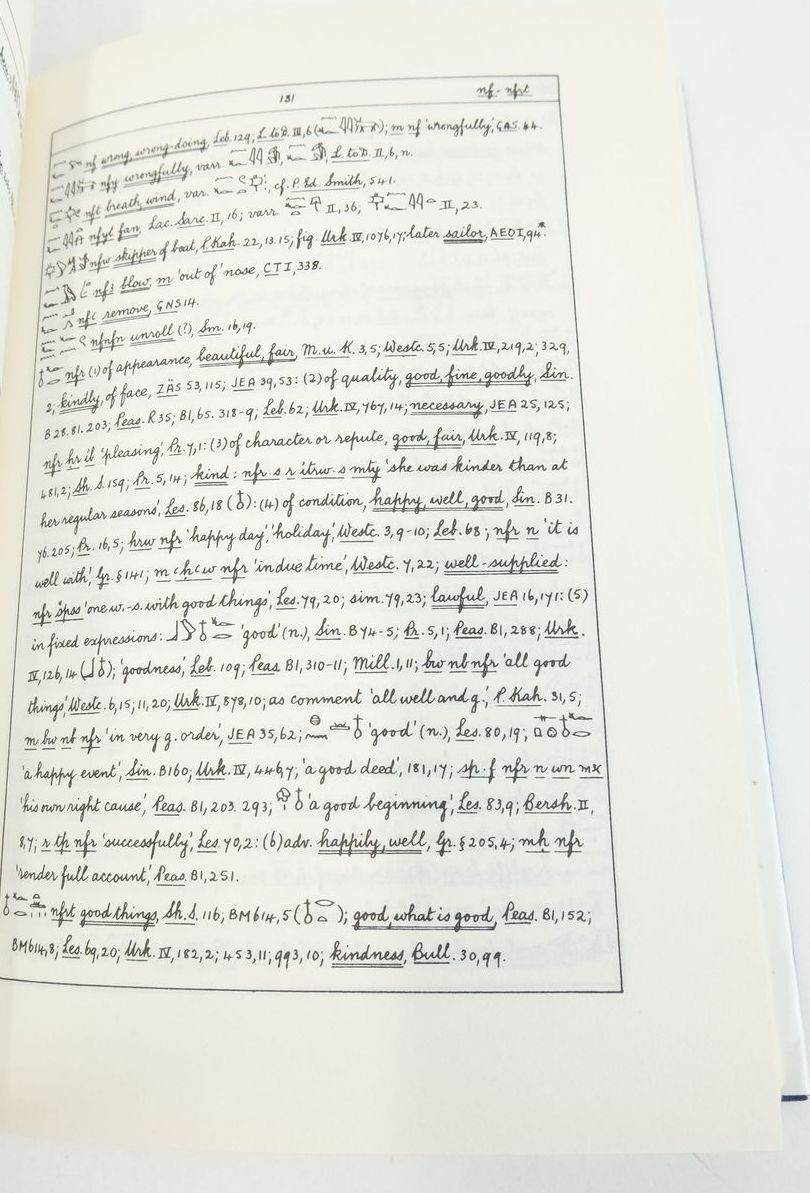 131 nf - nfrt
nf wrong, wrong-doing, Leb. 129; L. to D. III, 6 ( ); m nf 'wrongfully', GAS. 44.
nfy wrongfully, varr. , L. to D. II, 6, n.
nft breath, wind, var. , cf. P. Ed. Smith, 541.
nfyt fan, Lac. Sarc. II, 16; varr. II, 36; II, 23.
nfw skipper of boat, P. Kah. 22, 13. 15; fig. Urk. IV, 1076, 17; later sailor, AEO I, 94*.
nfꜣ blow, m 'out of' nose, CT I, 338.
nfꜥ remove, GNS 14.
nfnfn unroll (?), Sm. 16, 19.
nfr (1) of appearance, beautiful, fair, M. u. K. 3, 5; Westc. 5, 5; Urk. IV, 219, 2; 329,
2; kindly, of face, ZÄS 53, 115; JEA 39, 53: (2) of quality, good, fine, goodly, Sin.
B 28. 81. 203; Peas. R 35; B1, 65. 318-9; Leb. 62; Urk. IV, 767, 14; necessary, JEA 25, 125;
nfr ḥr ib 'pleasing', Pr. 7, 1: (3) of character or repute, good, fair, Urk. IV, 119, 8;
481, 2; Sh. S. 159; Pr. 5, 14; kind: nfr.s r itrw.s mty 'she was kinder than at
her regular seasons', Les. 86, 18 (𓄤): (4) of condition, happy, well, good, Sin. B 31.
76. 205; Pr. 16, 5; hrw nfr 'happy day', 'holiday', Westc. 3, 9-10; Leb. 68; nfr n 'it is
well with', Gr. § 141; m ꜥḥꜥw nfr 'in due time', Westc. 7, 22; well-supplied:
nfr špss 'one w.-s. with good things', Les. 79, 20; sim. 79, 23; lawful, JEA 16, 171: (5)
in fixed expressions: 'good' (n.), Sin. B 74-5; Pr. 5, 1; Peas. B1, 288; Urk.
IV, 126, 14 (𓃀𓄤); 'goodness', Leb. 109; Peas. B1, 310-11; Mill. 1, 11; bw nb nfr 'all good
things', Westc. 6, 15; 11, 20; Urk. IV, 878, 10; as comment 'all well and g.', P. Kah. 31, 5;
m bw nb nfr 'in very g. order', JEA 35, 62; 'good' (n.), Les. 80, 19;
'a happy event', Sin. B 160; Urk. IV, 446, 7; 'a good deed', 181, 17; sp.f nfr n wn mꜣꜥ
'his own right cause', Peas. B1, 203. 293; 'a good beginning', Les. 83, 9; Bersh. II,
8, 7; r tp nfr 'successfully', Les. 70, 2: (6) adv. happily, well, Gr. § 205, 4; mḥ nfr
'render full account', Peas. B1, 251.
nfrt good things, Sh. S. 116; BM 614, 5 ( ); good, what is good, Peas. B1, 152;
BM 614, 8; Les. 69, 20; Urk. IV, 182, 2; 453, 11; 993, 10; kindness, Bull. 30, 99.